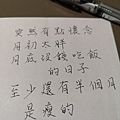 突然有點懷念
月初太胖
月底沒錢吃飯
的日子
至少還有半個月
是瘦的